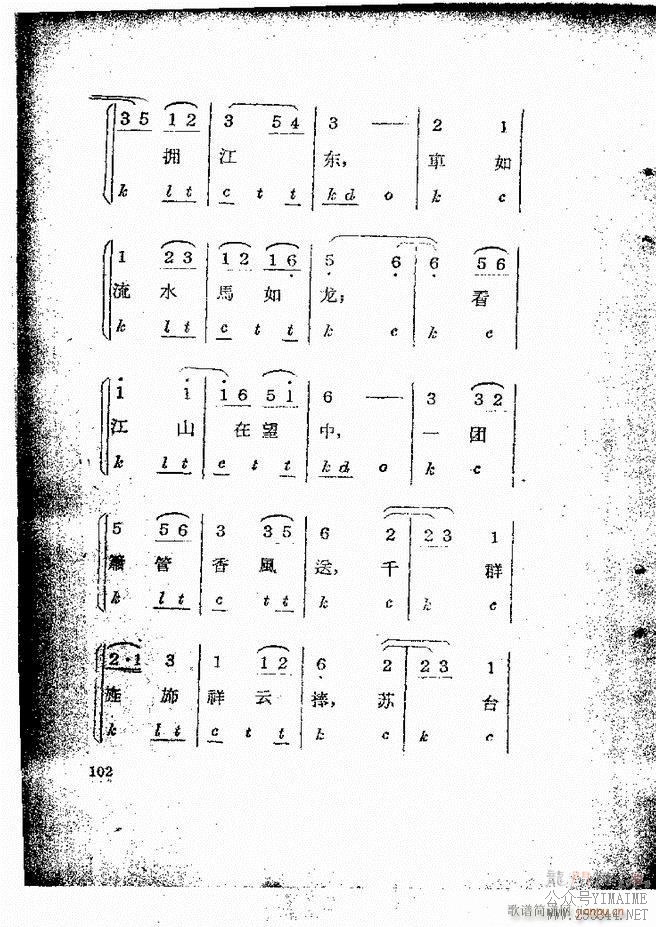 3 5 1 2 | 3 5 4 | 3 — | 2 1
拥 江 东, 車 如
k l t | c t t | k d o | k c
1 2 3 | 1 2 1 6 | 5 6 | 6 5 6
流 水 馬 如 龙; 看
k l t | c t t | k c | k c
1 1 | 1 6 5 1 | 6 — | 3 3 2
江 山 在 望 中, 一 团
k l t | c t t | k d o | k c
5 5 6 | 3 3 5 | 6 2 | 2 3 1
簫 管 香 風 送, 千 群
k l t | c t t | k c | k c
2·1 3 | 1 1 2 | 6 2 | 2 3 1
旌 旆 祥 云 捧, 苏 台
k l t | c t t | k c | k c
102
公众号YIMAIME
歌谱简谱网